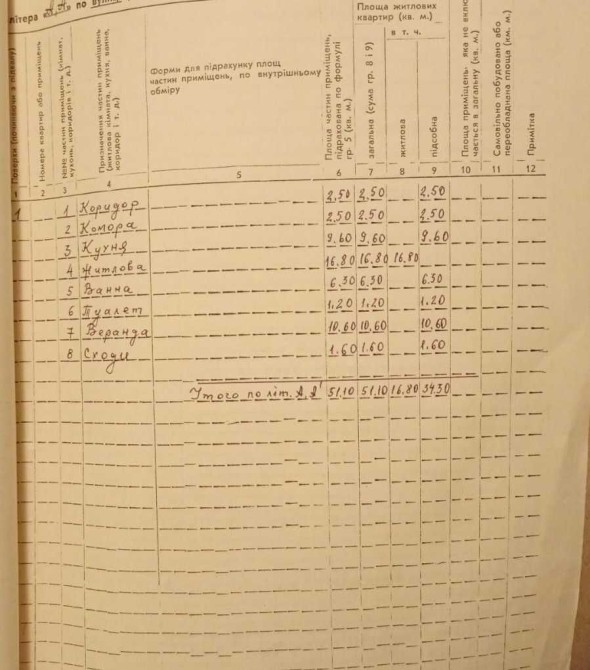 літера „А, А'" по
Поверхи (починаючи з підвалу)
Номера квартир або приміщень
кухонь, коридорів і т. д.)
Призначення частин приміщень (житлова кімната, кухня, ванна, коридор і т. д.)
Форми для підрахунку площ частин приміщень, по внутрішньому обміру
Площа частин приміщень, підрахована по формулі гр. 5 (кв. м.)
Площа житлових квартир (кв. м.)
загальна (сума гр. 8 і 9)
в т. ч.
житлова
підсобна
Площа приміщень, яка не вклю- чається в загальну (кв. м.)
Самовільно побудовано або переобладнана площа (км. м.)
Примітка
1 2 3 4 5 6 7 8 9 10 11 12
1 1 Коридор 2,50 2,50 2,50
2 Комора 2,50 2,50 2,50
3 Кухня 9.60 9,60 9.60
4 Житлова 16.80 16.80 16.80
5 Ванна 6.30 6,30 6.30
6 Туалет 1,20 1.20 1.20
7 Веранда 10,60 10,60 10,60
8 Сходи 1.60 1.60 1.60
Итого по літ. А, А' 51.10 51.10 16.80 34.30